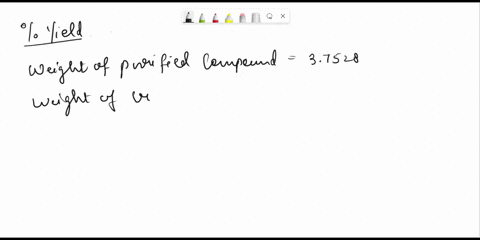 % Yield
Weight of purified Compound = 3.7528
Weight of